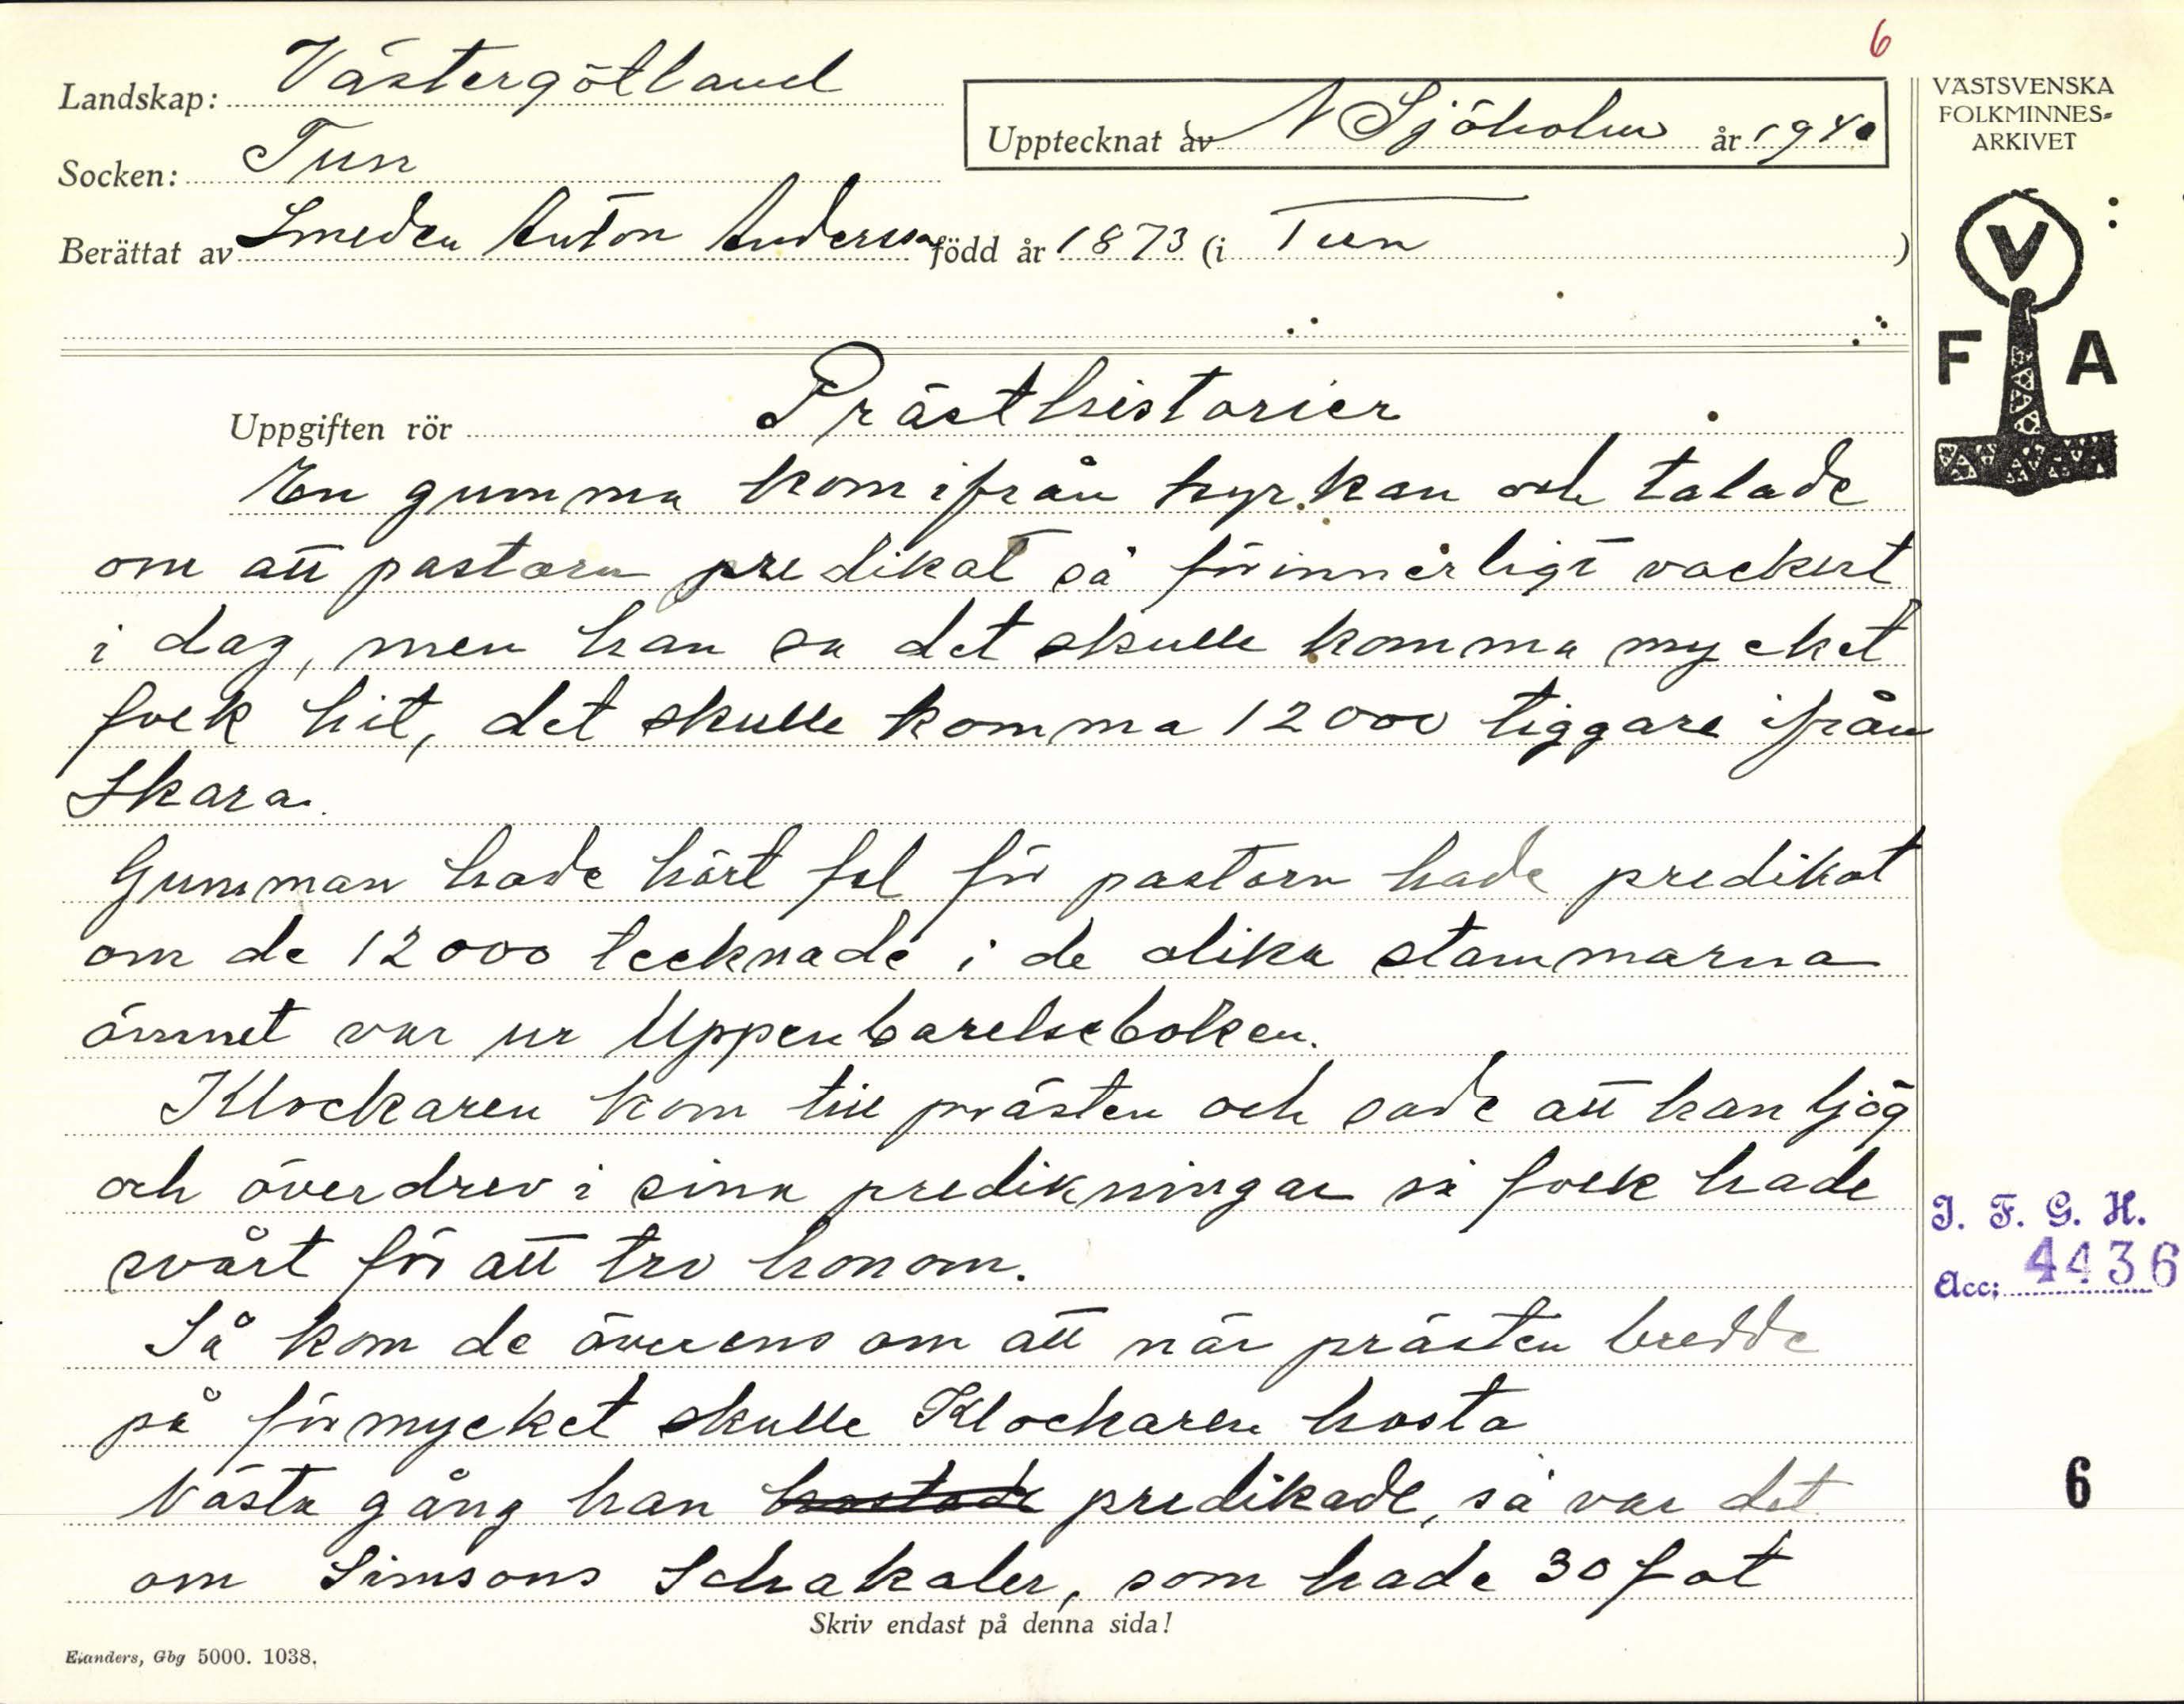 6
Landskap: Västergötland
Upptecknat av N Sjöholm år 1940
Socken: Tun
Berättat av Smeden Anton Andersson född år 1873 (i Tun)
Uppgiften rör Prästhistorier
En gumma kom ifrån kyrkan och talade
om att pastorn predikat så förinnerligt vackert
i dag, men han sa det skulle komma mycket
folk hit, det skulle komma 12000 tiggare ifrån
Skara.
Gumman hade hört fel för pastorn hade predikat
om de 12000 tecknade i de olika stammarna
ämnet var ur Uppenbarelseboken.
Klockaren kom till prästen och sade att han ljög
och överdrev i sina predikningar så folk hade
svårt för att tro honom.
Så kom de överens om att när prästen bredde
på för mycket skulle Klockaren hosta
Nästa gång han hostade predikade, så var det
om Simsons Schakaler, som hade 30 fot
Skriv endast på denna sida!
Elanders, Gbg 5000. 1038.
VÄSTSVENSKA
FOLKMINNES-
ARKIVET
V
F A
I. F. G. H.
Acc: 4436
6